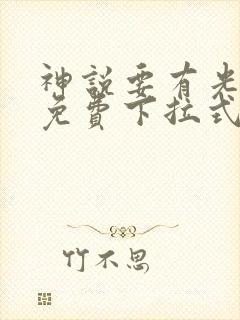 神說要有光
免費下拉式
竹不思